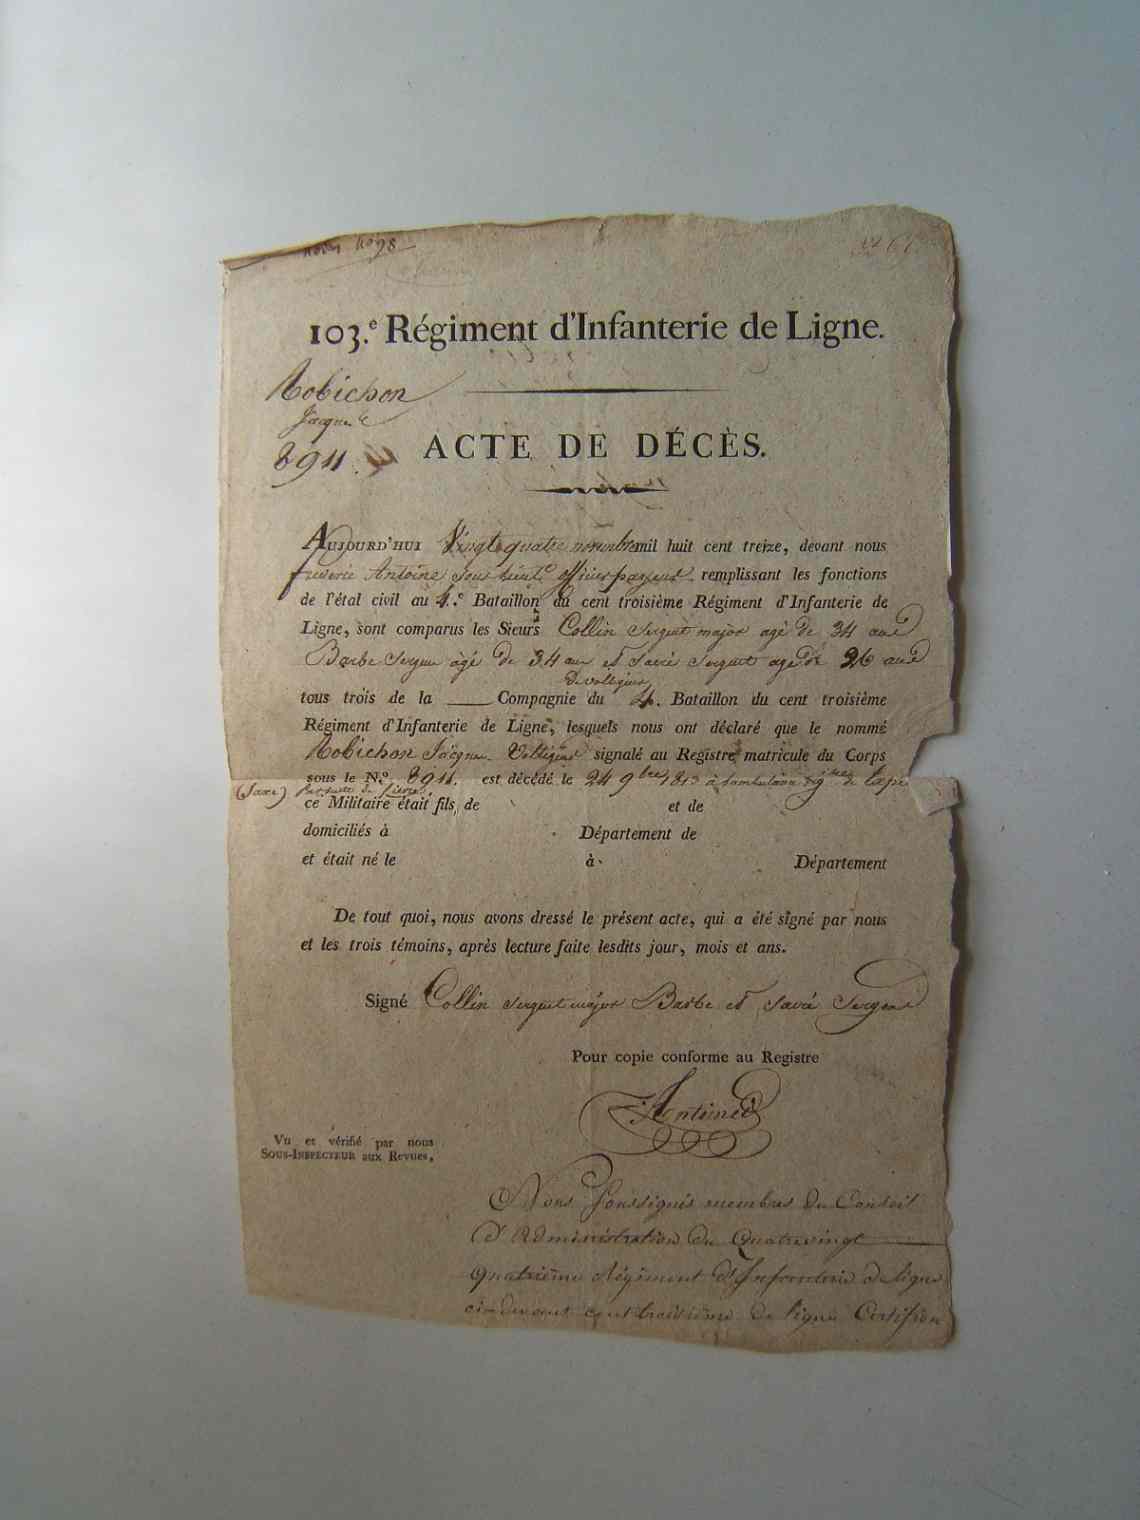 103.e Régiment d'Infanterie de Ligne.
Robichon
Jacques
8911.
ACTE DE DÉCÈS.
AUJOURD'HUI Vingt quatre novembre mil huit cent treize, devant nous
Antoine Sous Lieut.t officier payeur remplissant les fonctions
de l'étal civil au 4.e Bataillon du cent troisième Régiment d'Infanterie de
Ligne, sont comparus les Sieurs Collin Sergent major agé de 34 ans
Barbe Sergent âgé de 34 ans et Savié Sergent agé de 26 ans
de voltigeurs
tous trois de la Compagnie du 4. Bataillon du cent troisième
Régiment d'Infanterie de Ligne, lesquels nous ont déclaré que le nommé
Robichon Jacques Voltigeur signalé au Registre matricule du Corps
sous le N.o 8911. est décédé le 24 9bre 1813 à
(Saxe) par suite de fièvre.
ce Militaire était fils de et de
domiciliés à Département de
et était né le à Département
De tout quoi, nous avons dressé le présent acte, qui a été signé par nous
et les trois témoins, après lecture faite lesdits jour, mois et ans.
Signé Collin Sergent major Barbe et Savié Sergens
Pour copie conforme au Registre
Antoine
Vu et vérifié par nous
SOUS-INSPECTEUR aux Revues,
Nous soussignés membres du Conseil
d'Administration du Quatrevingt
quatrième Régiment d'Infanterie de ligne
ci devant cent troisième de ligne Certifions